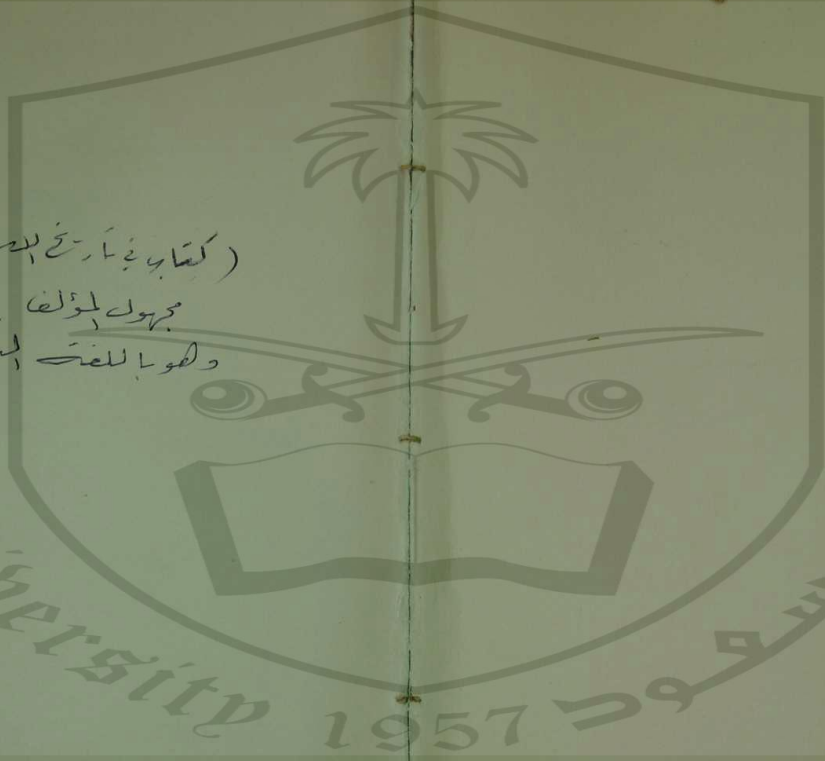 ( كتاب في تاريخ
مجهول المؤلف
وهو باللغة
ersity 1957 سعود